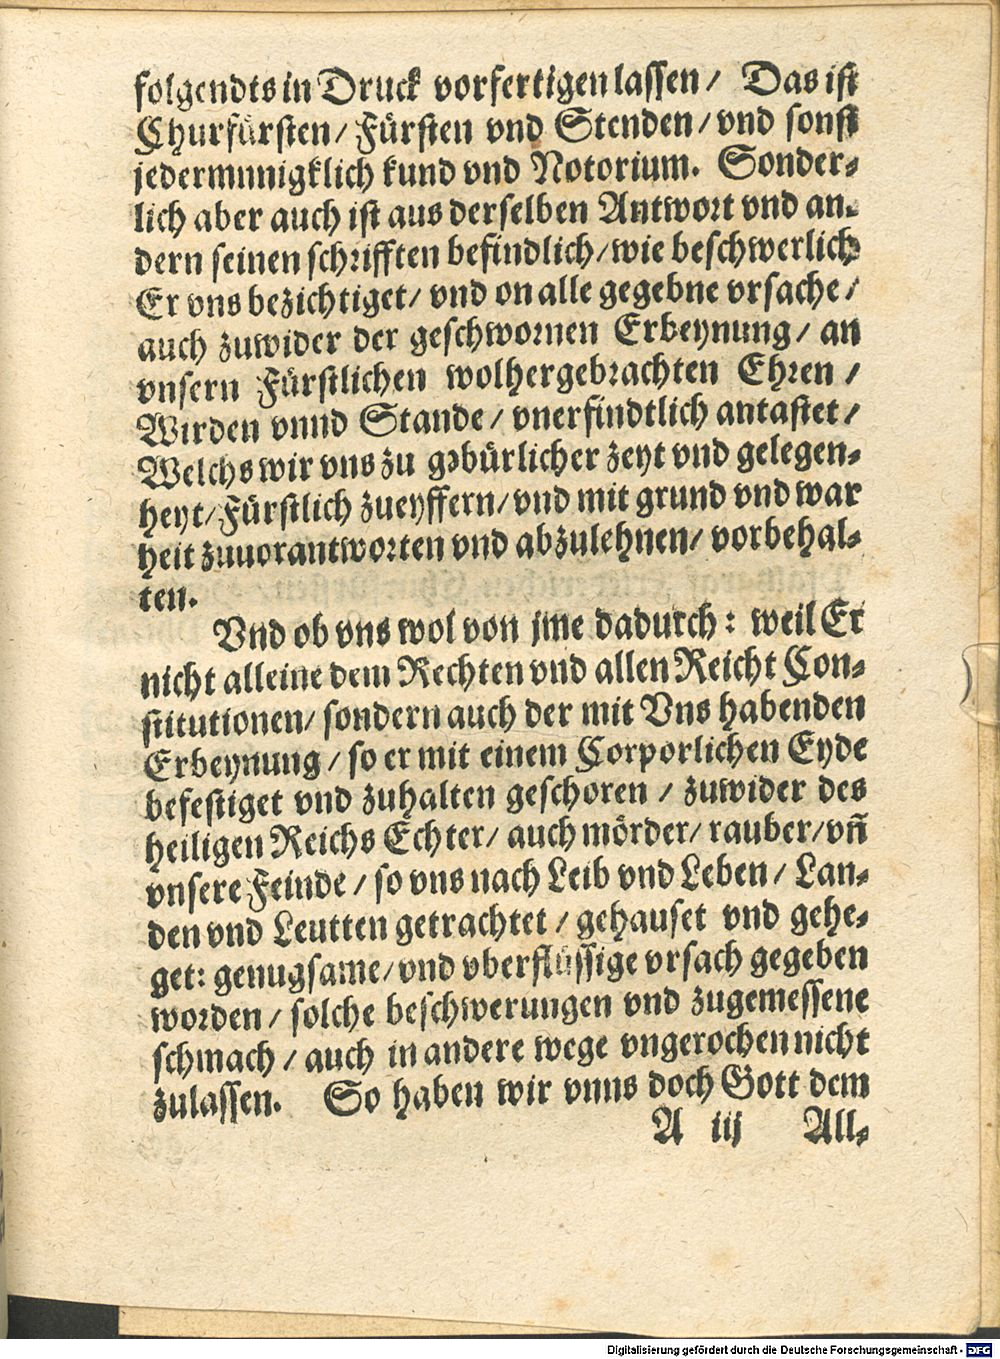 folgendts in Druck vorfertigen lassen/ Das ist
Churfürsten/ Fürsten vnd Stenden/ vnd sonst
jedermnnigklich kund vnd Notorium. Sonder-
lich aber auch ist aus derselben Antwort vnd an-
dern seinen schrifften befindlich/ wie beschwerlich
Er vns bezichtiget/ vnd on alle gegebne vrsache/
auch zuwider der geschwornen Erbeynung/ an
vnsern Fürstlichen wolhergebrachten Ehren/
Wirden vnnd Stande/ vnerfindtlich antastet/
Welchs wir vns zu gebürlicher zeyt vnd gelegen-
heyt/ Fürstlich zueyffern/ vnd mit grund vnd war
heit zuuorantworten vnd abzulehnen/ vorbehal-
ten.
Vnd ob vns wol von jme dadurch: weil Er
nicht alleine dem Rechten vnd allen Reicht Con-
stitutionen/ sondern auch der mit Vns habenden
Erbeynung/ so er mit einem Corporlichen Eyde
befestiget vnd zuhalten geschoren/ zuwider des
heiligen Reichs Echter/ auch mörder/ rauber/ vñ
vnsere Feinde/ so vns nach Leib vnd Leben/ Lan-
den vnd Leutten getrachtet/ gehauset vnd gehe-
get: genugsame/ vnd vberflüssige vrsach gegeben
worden/ solche beschwerungen vnd zugemessene
schmach/ auch in andere wege vngerochen nicht
zulassen. So haben wir vnns doch Gott dem
A iij All-
Digitalisierung gefördert durch die Deutsche Forschungsgemeinschaft - DFG